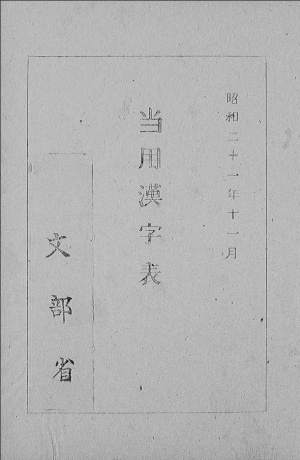 昭和二十一年十一月
当用漢字表
文部省